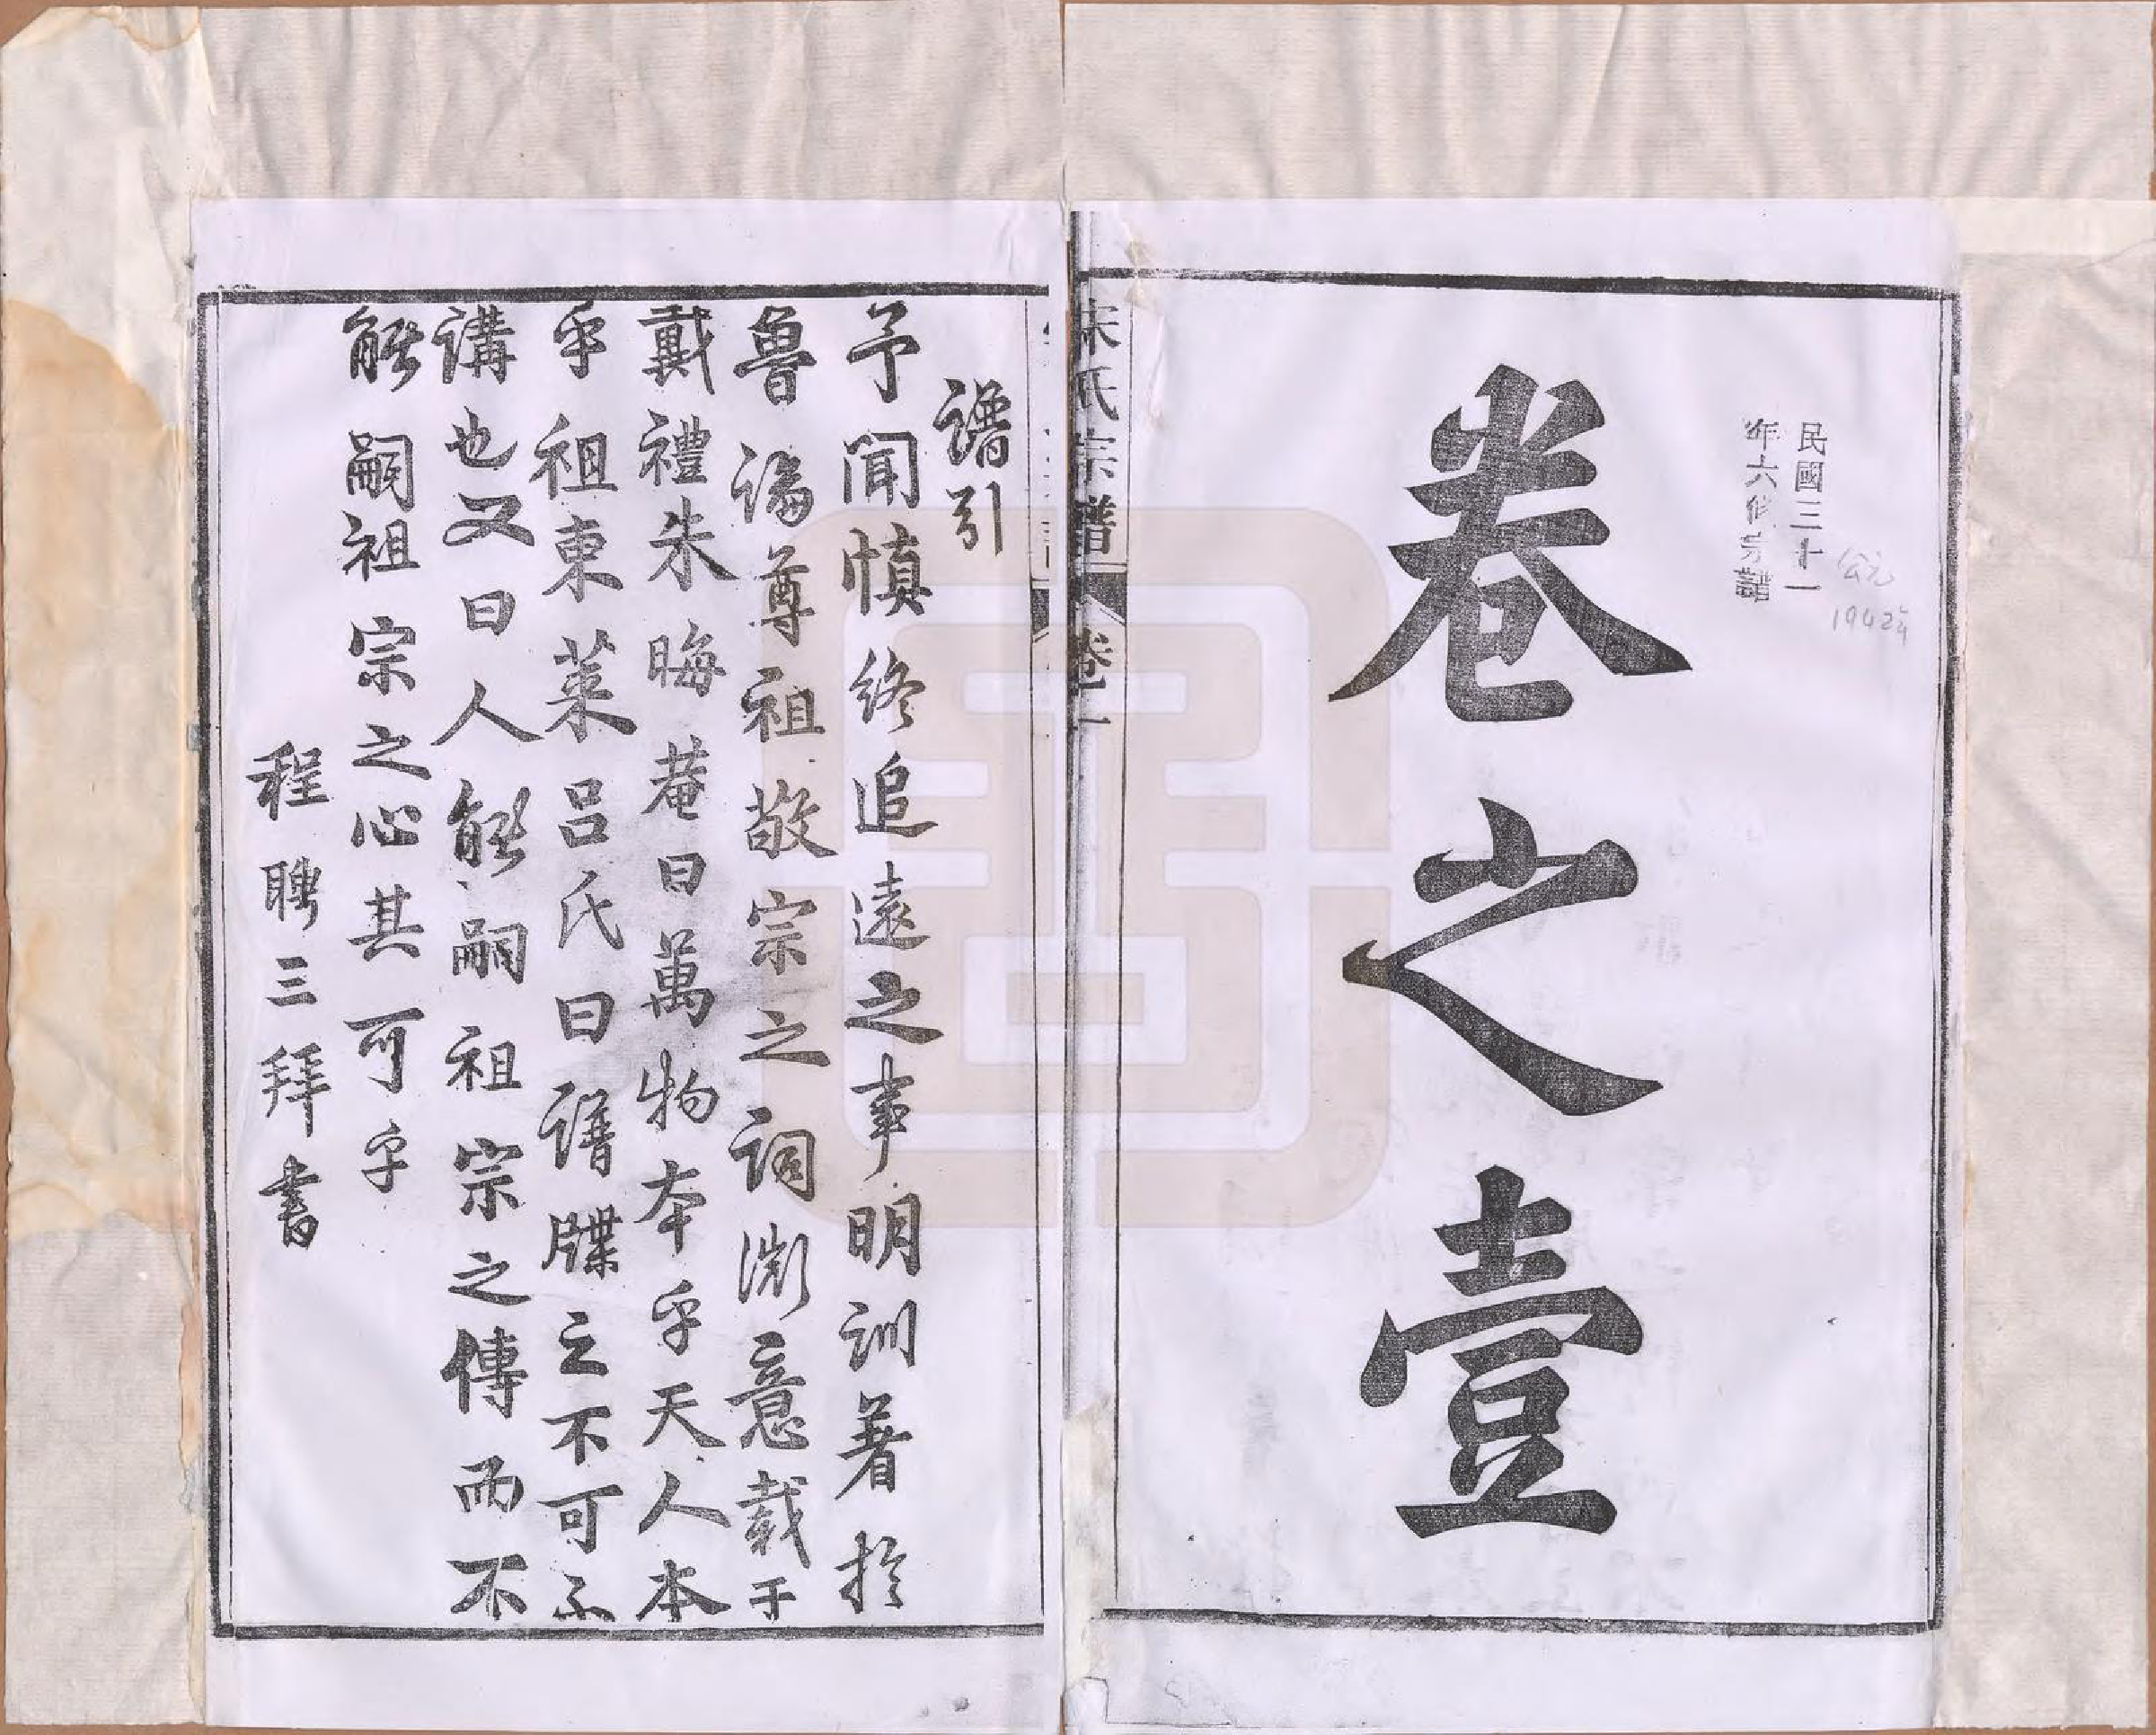 卷之壹
民國三十一
年六修宗譜
公元
1942年
宋氏宗譜 卷一
譜引
予聞慎終追遠之事明訓著於
魯論尊祖敬宗之詞微意載于
戴禮朱晦菴曰萬物本乎天人本
乎祖東萊呂氏曰譜牒之不可不
講也又曰人能嗣祖宗之傳而不
能嗣祖宗之心其可乎
程聘三拜書